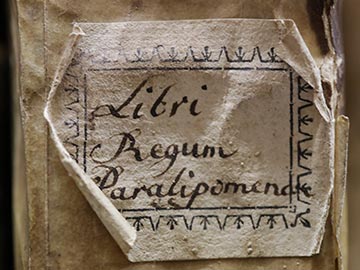 Libri
Regum
Paralipomena